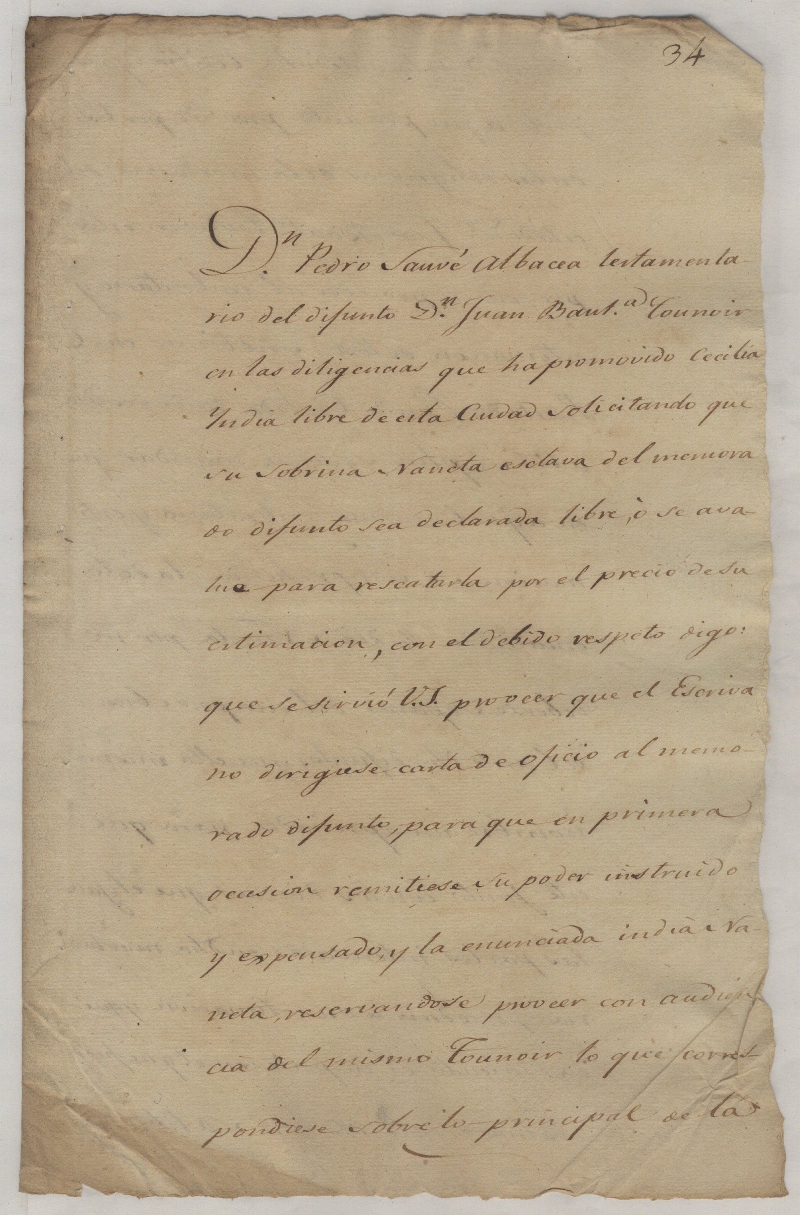 34
D.n Pedro Sauvé Albacea testamenta-
rio del difunto D.n Juan Baut.a Tounoir
en las diligencias que ha promovido Cecilia
Yndia libre de esta Ciudad solicitando que
su Sobrina Naneta esclava del memora
do difunto sea declarada libre, ò se ava-
lue para rescatarla por el precio de su
estimacion, con el debido respeto digo:
que se sirvió V.S. proveer que el Escriva
no dirigiese carta de oficio al memo-
rado difunto, para que en primera
ocasion remitiese su poder instruido
y expensado, y la enunciada india Na-
neta, reservandose proveer con audien
cia del mismo Tounoir lo que corres-
pondiese sobre lo principal de la